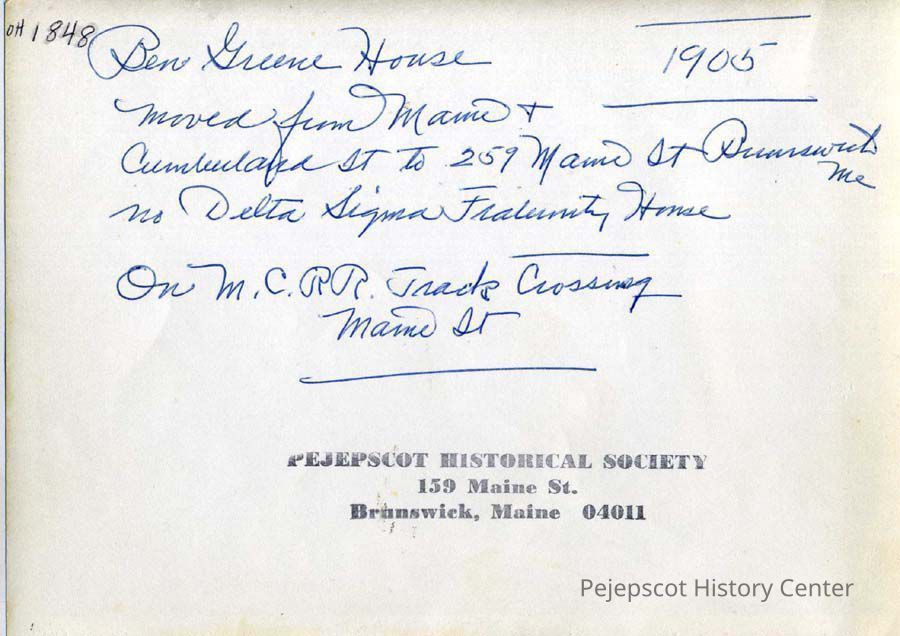 OH 1848
Ben Greene House
1905
moved from Maine +
Cumberland St to 259 Maine St Brunswick
Me
no Delta Sigma Fraternity House
On M.C.RR. Track Crossing
Maine St
PEJEPSCOT HISTORICAL SOCIETY
159 Maine St.
Brunswick, Maine 04011
Pejepscot History Center